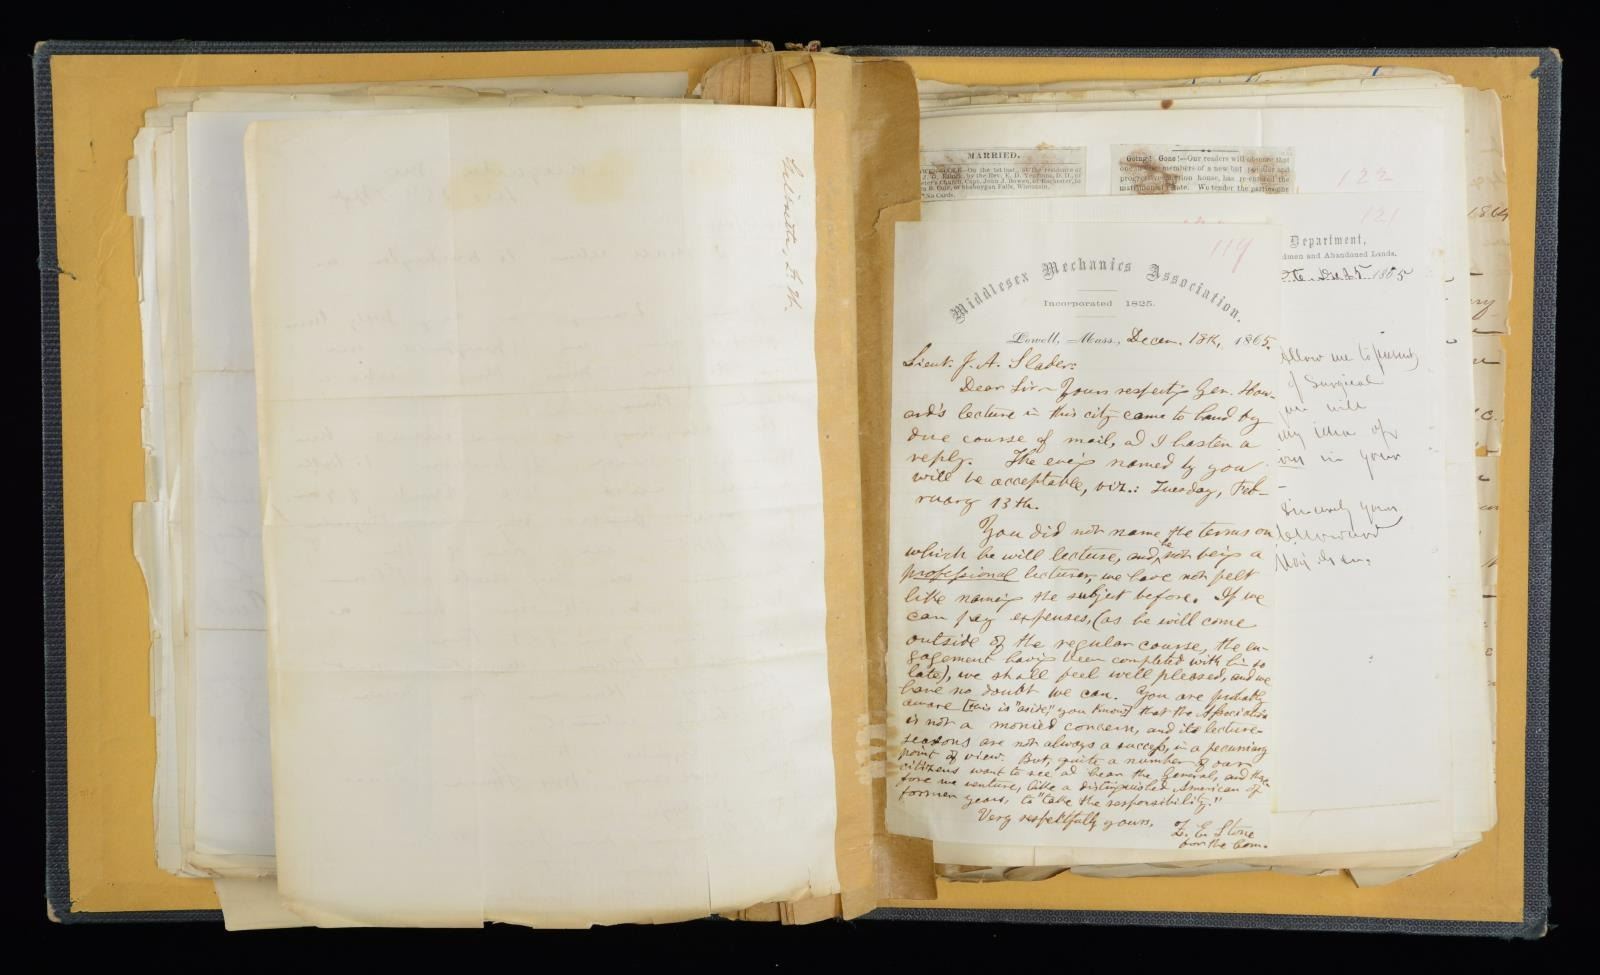 MARRIED.
by the Rev. E. D. Yeomans, D. D., of
Church, Capt. John J. Bowen, of Rochester, to
of Sheboygan Falls, Wisconsin.
No Cards.
Going! Gone!—Our readers will observe that
members of a new but popular and
progressive house, has re-entered the
state. We tender the parties our
122
121
Department,
dmen and Abandoned Lands.
1865
119
Middlesex Mechanics Association.
Incorporated 1825.
Lowell, Mass., Decem. 18th, 1865.
Lieut. J. A. Slader:
Dear Sir— Yours respect'g Gen. How-
ard's lecture in this city came to hand by
due course of mail, ad I hasten a
reply. The eve'g named by you
will be acceptable, viz.: Tuesday, Feb-
ruary 13th.
You did not name the terms on
which he will lecture, and, he not being a
professional lecturer, we have not felt
like naming the subject before. If we
can pay expenses, (as he will come
outside of the regular course, the en-
gagement having been completed with him so
late), we shall feel well pleased, and we
have no doubt we can. You are probably
aware [this is "aside," you know] that the Association
is not a monied concern, and its lecture-
seasons are not always a success, in a pecuniary
point of view. But, quite a number of our
citizens want to see ad hear the General, and there-
fore we venture, like a distinguished American of
former years, to "take the responsibility."
Very respectfully yours,
Z. E. Stone
for the Com.
Allow me to
of Surgical
will
my idea of
in your
Sincerely yours
Maj Gen.
1864